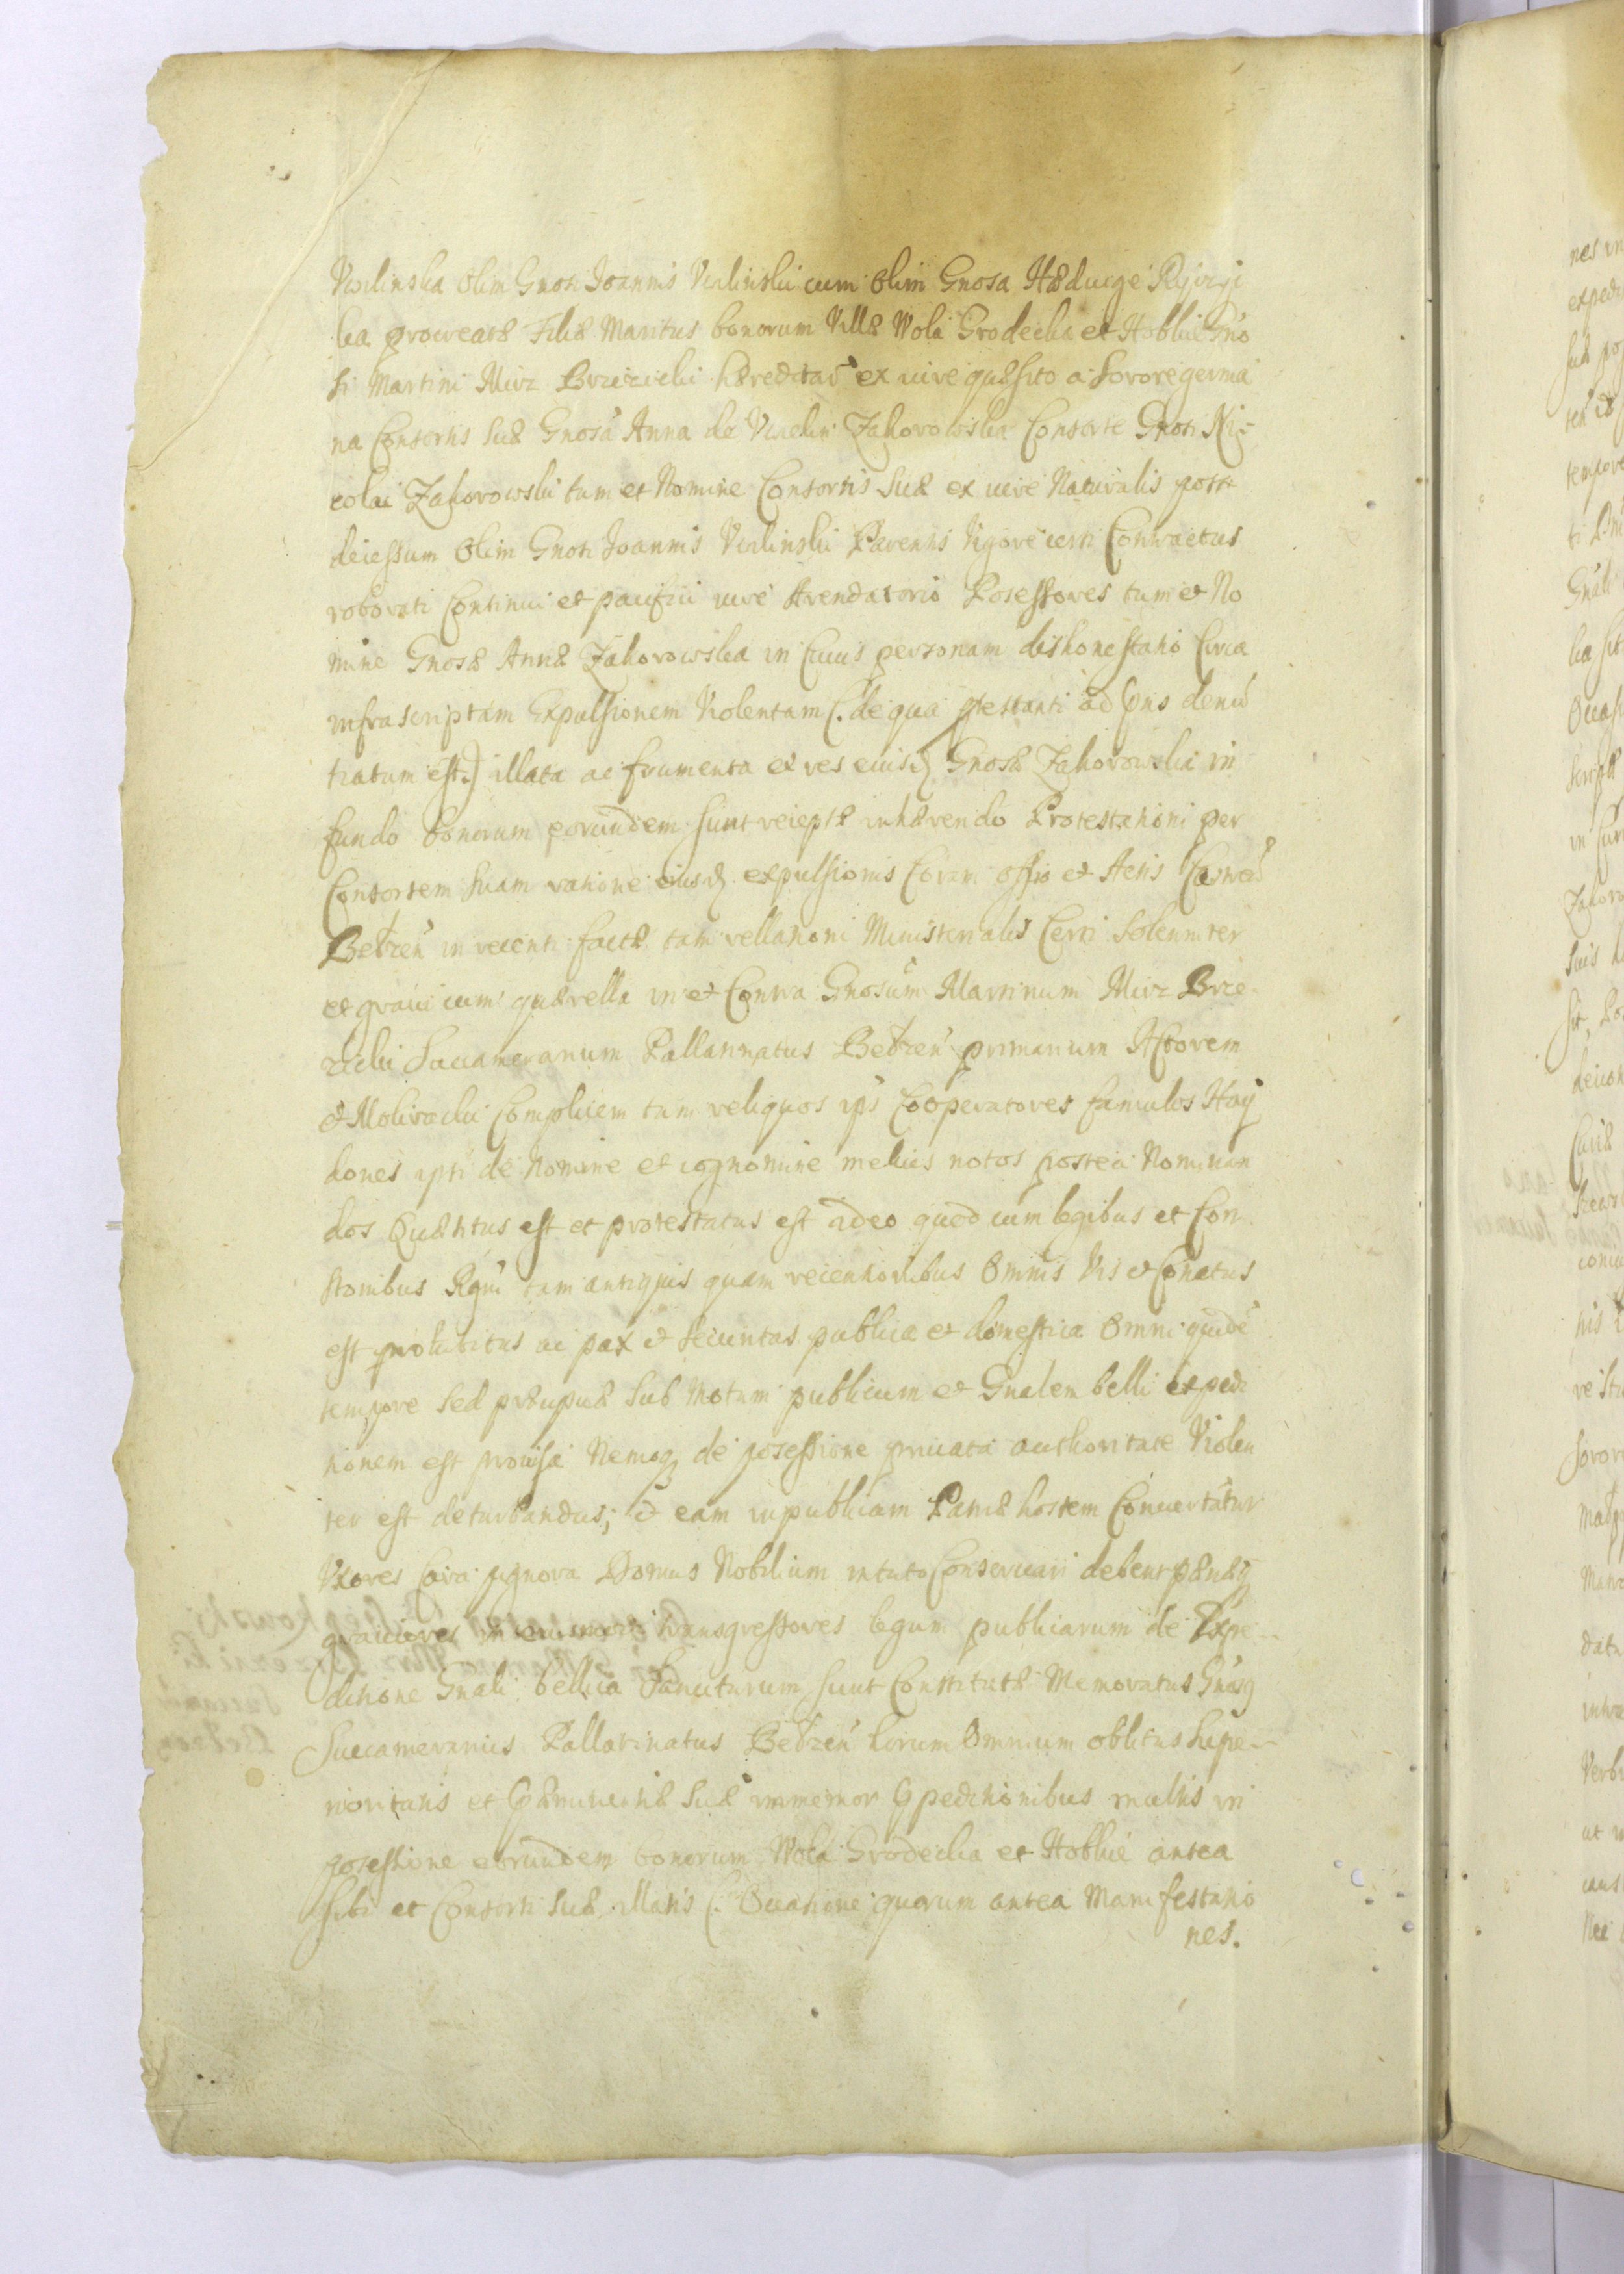 Vrlinska olim Gnosi Joannis Vrlinski cum olim Gnosa Hæduige
ka procreatæ Filiæ Maritus bonorum Villæ Wola Grodecka et Hobkie Gno
si Martini Mirz Brzezicki hæreditar ex iure quæsito a Sorore germa
na Consortis suæ Gnosa Anna de Zahorowska Consorte Gnosi Ni-
colai Zahorowski tum et Nomine Consortis suæ ex iure Naturalis post
decessum olim Gnosi Joannis Vrlinski Parentis Vigore certi Contractus
roborati Continui et pacifici iure Arendatorio Posessores tum et No
mine Gnosæ Annæ Zahorowska in Cuius personam dishonestatio Circa
infrascriptam Expulsionem Violentam (. de qua ptestanti ad pns denu
tiatum est.) illata ac frumenta et res eiusd Gnosæ Zahorowska in
fundo bonorum eorundem sunt receptæ inhærendo Protestationi per
Consortem suam ratione eiusd expulsionis Coram offio et Actis Castren
Betzen in recenti factæ tam rellationi Ministerialis Certi solenniter
et graui cum quærella in et Contra Gnosum Martinum Mirz Brze
zicki Succamerarium Pallatinatus Betzen primarium Actorem
et Mokracki Complicem tum reliquos ips Cooperatores famulos Hay
dones ipsi de Nomine et cognomine melius notos postea Nominan
dos Quæstus est et protestatus est ideo quod cum legibus et Con
stonibus Regni tam antiquis quam recentioribus Omnis Vis et Conatus
est prohibitus ac pax et securitas publica et domestica Omni quide
tempore sed præcipuæ sub Motum publicum et Gnalem belli expedi
tionem est prouisa Nemoq de posessione priuata authoritate Violen
ter est deturbandus; et eam in publicam Patriæ hostem Conuertatur
Vxores Cara pignora Domus Nobilium in tuto Conseruari debent pænæq
grauiores in transgressores legum publicarum de Expe
ditione Gnali bellica sunt Constitutæ Memoratus Gnosq
Succamerarius Pallatinatus Betzen horum Omnium oblitus supe
rioritatis et suæ immemor pedinonibus multis in
posessione eorundem bonorum Wola Grodecka et Hobkie antea
sibi et Consorti suæ illatis (. Ocatione quarum antea Manifestatio
nes.